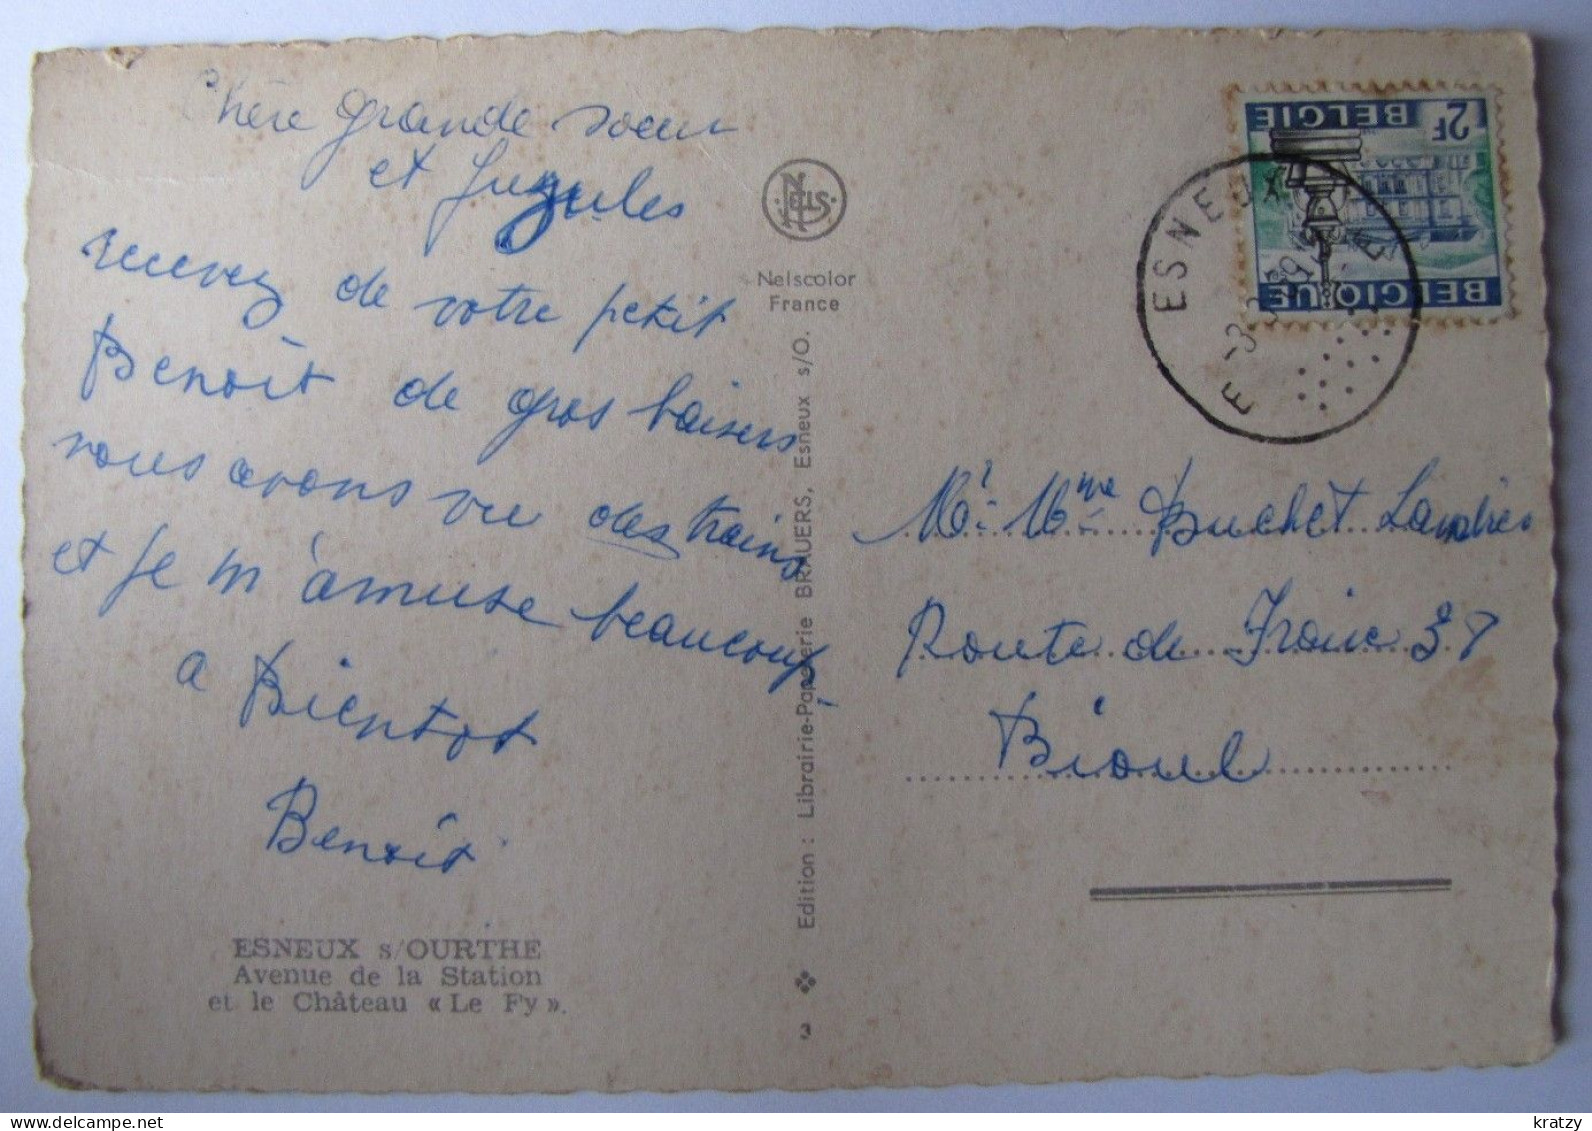 Chère grande soeur
et Jugules
recevez de votre petit
Benoît de gros baisers
nous avons vu des trains
et je m'amuse beaucoup
a Bientot
Benoit
ESNEUX s/OURTHE
Avenue de la Station
et le Château « Le Fy ».
NELS
Nelscolor
France
Edition : Librairie-Papeterie BRAUERS, Esneux s/O.
3
BELGIE 2F
BELGIQUE
ESNEUX
E
Mr. Mme Buchet Landries
Route de Fraire 37
Bioul
kratzy